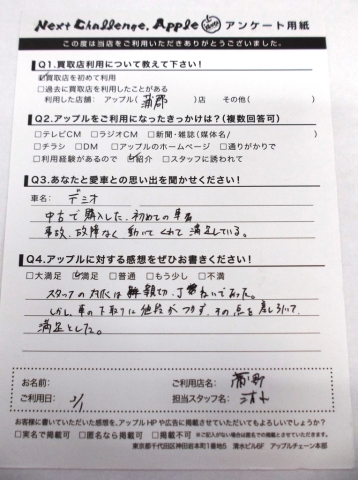 Next Challenge. Apple アンケート用紙
この度は当店をご利用いただきありがとうございました。
Q1.買取店利用について教えて下さい!
☑買取店を初めて利用
□過去に買取店を利用したことがある
利用した店舗: アップル(蒲郡)店 その他( )
Q2.アップルをご利用になったきっかけは?(複数回答可)
□テレビCM □ラジオCM □新聞・雑誌(媒体名/ )
□チラシ □DM □アップルのホームページ □通りがかりで
□利用経験があるので ☑紹介 □スタッフに誘われて
Q3.あなたと愛車との思い出を聞かせください!
車名: デミオ
中古で購入した、初めての車
事故、故障なく動いてくれて満足している。
Q4.アップルに対する感想をぜひお書きください!
□大満足 ☑満足 □普通 □もう少し □不満
スタッフの対応は親切、丁ねいであった。
しかし車の下取りに値段がつかず、その点を差し引いて
満足とした。
お名前: ご利用店名: 蒲郡
ご利用日: 2/1 担当スタッフ名: 清水
お客様に書いていただいた感想を、アップルHPや広告に掲載させていただいてもよろしいでしょうか?
□実名で掲載可 □匿名なら掲載可 □掲載不可 ※ご記入がない場合は匿名での掲載とさせていただきます。
東京都千代田区神田岩本町1番地5 清水ビル6F アップルチェーン本部